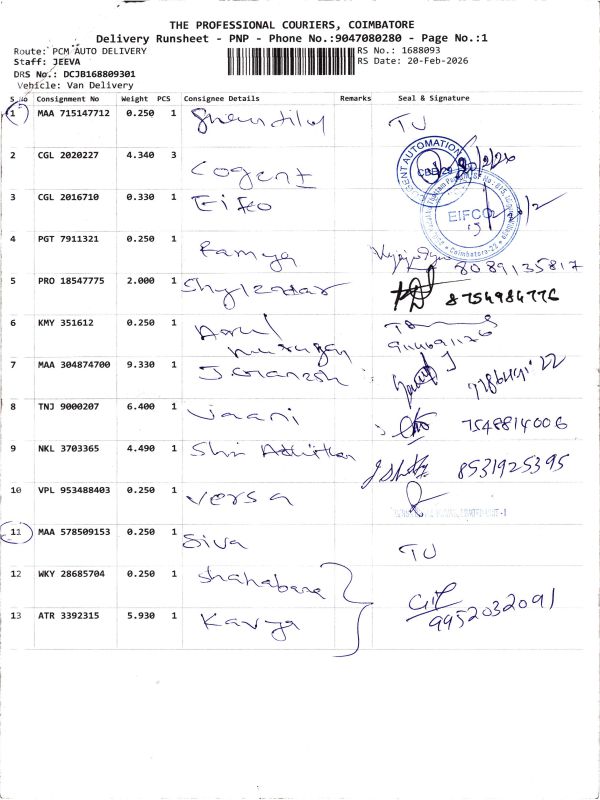 THE PROFESSIONAL COURIERS, COIMBATORE
Delivery Runsheet - PNP - Phone No.:9047080280 - Page No.:1
Route: PCM AUTO DELIVERY
Staff: JEEVA
DRS No.: DCJB168809301
Vehicle: Van Delivery
RS No.: 1688093
RS Date: 20-Feb-2026
S.No Consignment No Weight PCS Consignee Details Remarks Seal & Signature
1 MAA 715147712 0.250 1 TU
2 CGL 2020227 4.340 3 Cogent
3 CGL 2016710 0.330 1 Eifco EIFCO
4 PGT 7911321 0.250 1 Ramya 8089135817
5 PRO 18547775 2.000 1 8754984776
6 KMY 351612 0.250 1 Arul murugan
7 MAA 304874700 9.330 1 J.Ganesh
8 TNJ 9000207 6.400 1 Vaani 7548814006
9 NKL 3703365 4.490 1 Shri 8531925395
10 VPL 953488403 0.250 1 Versa
11 MAA 578509153 0.250 1 Siva TU
12 WKY 28685704 0.250 1 Shahabana
13 ATR 3392315 5.930 1 Kavya 9952032091